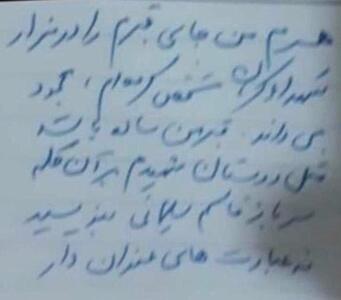 همسرم من جای قبرم را در مزار
شهدا کرمان مشخص کرده‌ام، محمود
می‌داند. قبر من ساده باشد
مثل دوستان شهیدم. بر آن کلمه
سرباز قاسم سلیمانی بنویسید
نه عبارت‌های عنوان دار